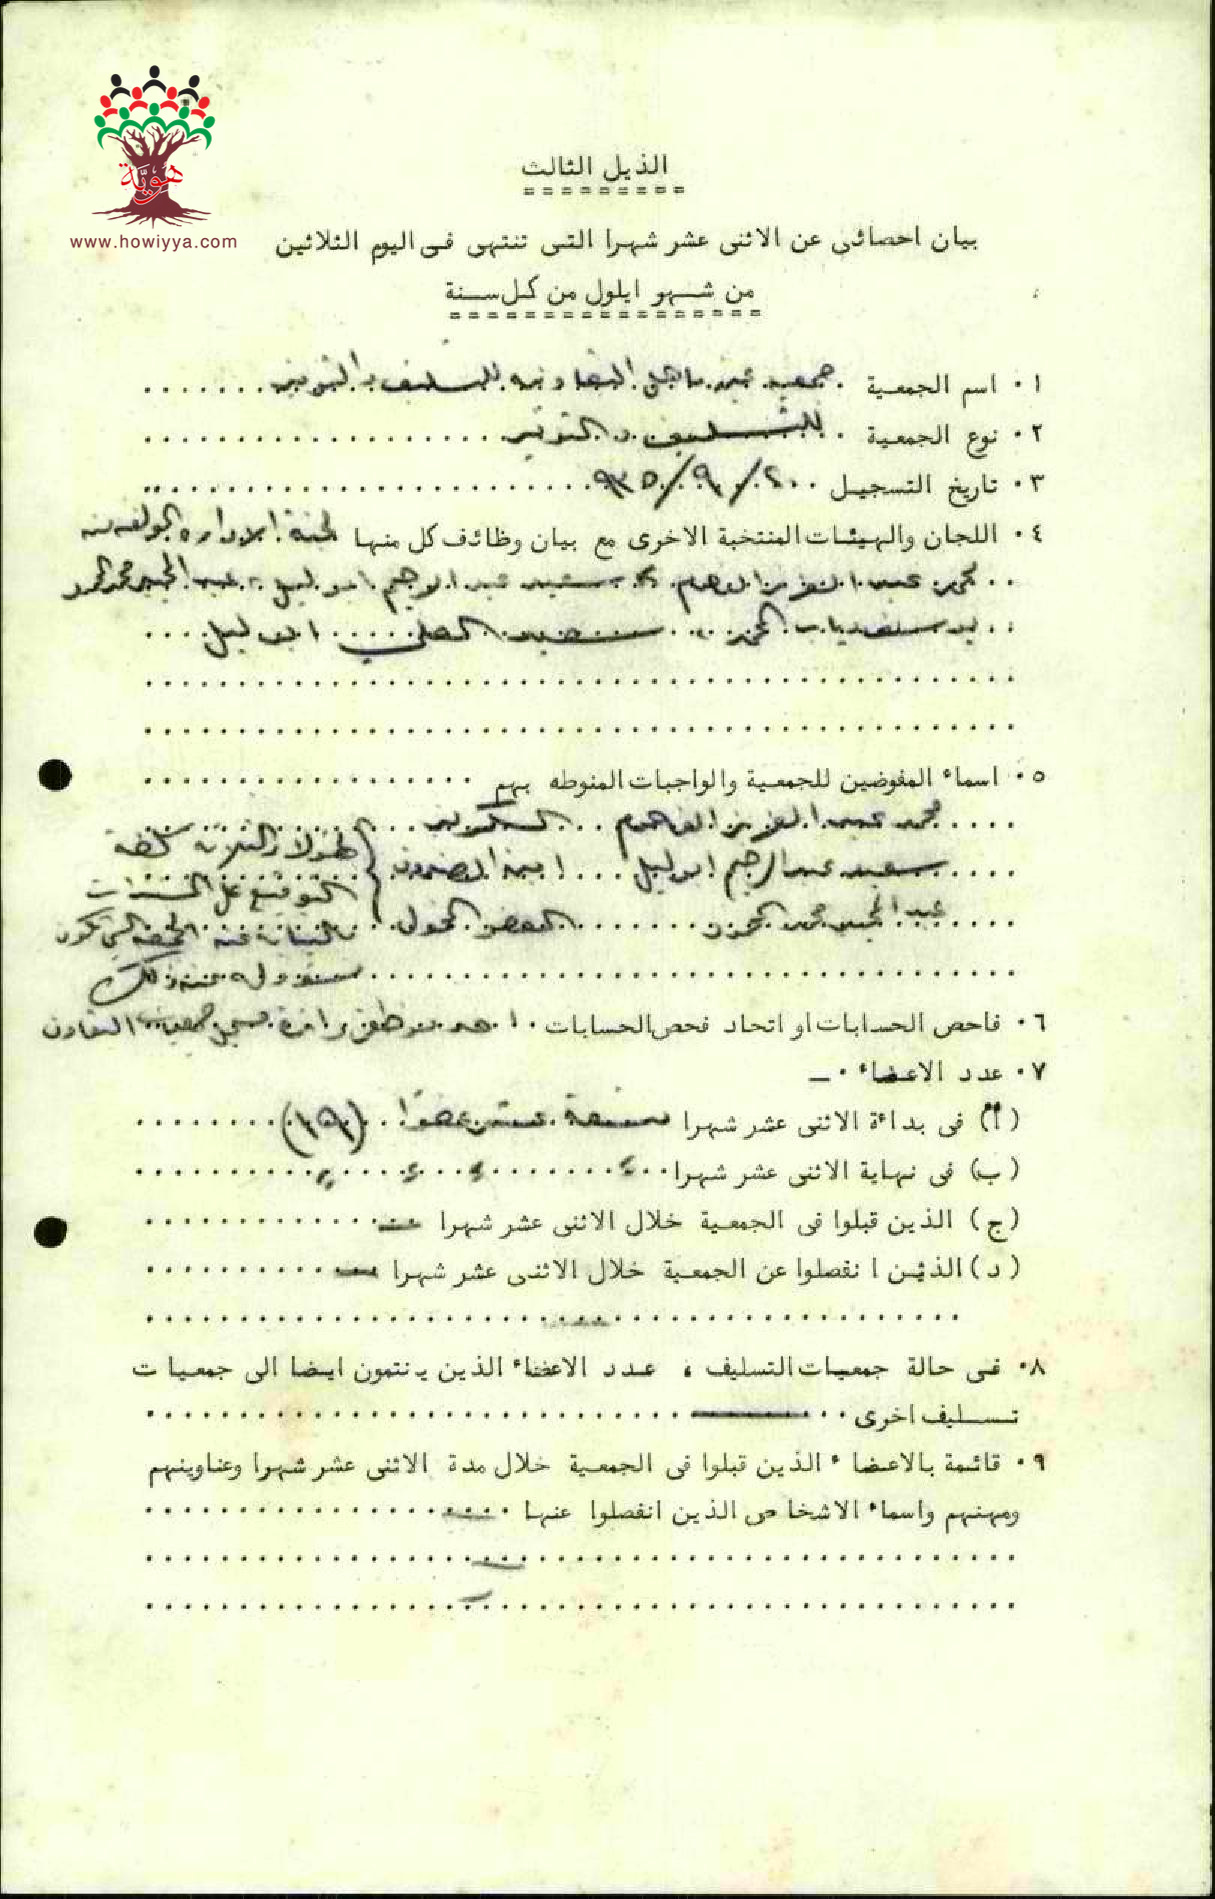 هوية
www.howiyya.com
الذيل الثالث
بيان احصائى عن الاثنى عشر شهرا التى تنتهى فى اليوم الثلاثين
من شهو ايلول من كل سنة
١٠ اسم الجمعية جمعية عين ماهل التعاونيه للتسليف والتوفير
٢٠ نوع الجمعية للتسليف و التوفير
٣٠ تاريخ التسجيل ٢٠/٩/٩٣٥
٤٠ اللجان والهيئات المنتخبة الاخرى مع بيان وظائف كل منها لجنة الاداره المؤلفه من
محمد عبد العزيز سعيد عبد الرحيم ابو ليل عبد المجيد محمد
سعيد العلي ابو ليل
٥٠ اسماء المفوضين للجمعية والواجبات المنوطه بهم
محمد عبد العزيز السكرتير
سعيد عبد الرحيم ابو ليل امين الصندوق
عبد المجيد محمد العضو المخول
هؤلاء الثلاثة
التوقيع على
بالنيابة عن الجمعية التي تكون
مسؤوله عن ذلك
٦٠ فاحص الحسابات او اتحاد فحص الحسابات احد موظفي دائرة مسجل جمعيات التعاون
٧٠ عدد الاعضاء ٠ ـ
(أ) فى بداءة الاثنى عشر شهرا عشر عضوا
(ب) فى نهاية الاثنى عشر شهرا
(ج) الذين قبلوا فى الجمعية خلال الاثنى عشر شهرا
(د) الذين انفصلوا عن الجمعية خلال الاثنى عشر شهرا
٨٠ فى حالة جمعيات التسليف ، عدد الاعضاء الذين ينتمون ايضا الى جمعيات
تسليف اخرى
٩٠ قائمة بالاعضاء الذين قبلوا فى الجمعية خلال مدة الاثنى عشر شهرا وعناوينهم
ومهنهم واسماء الاشخاص الذين انفصلوا عنها